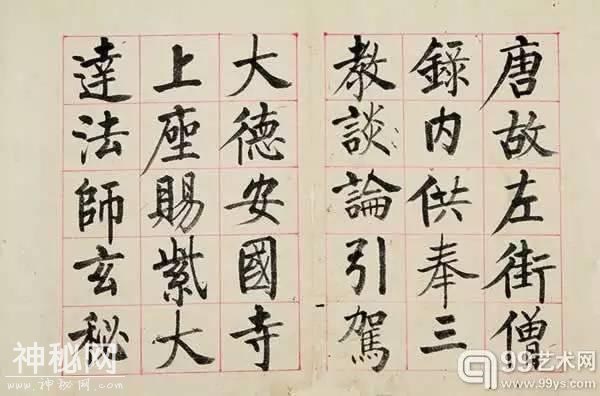 唐故左街僧
錄內供奉三
教談論引駕
大德安國寺
上座賜紫大
達法師玄秘
神秘网
www.神秘网.COM
99艺术网
www.99ys.com